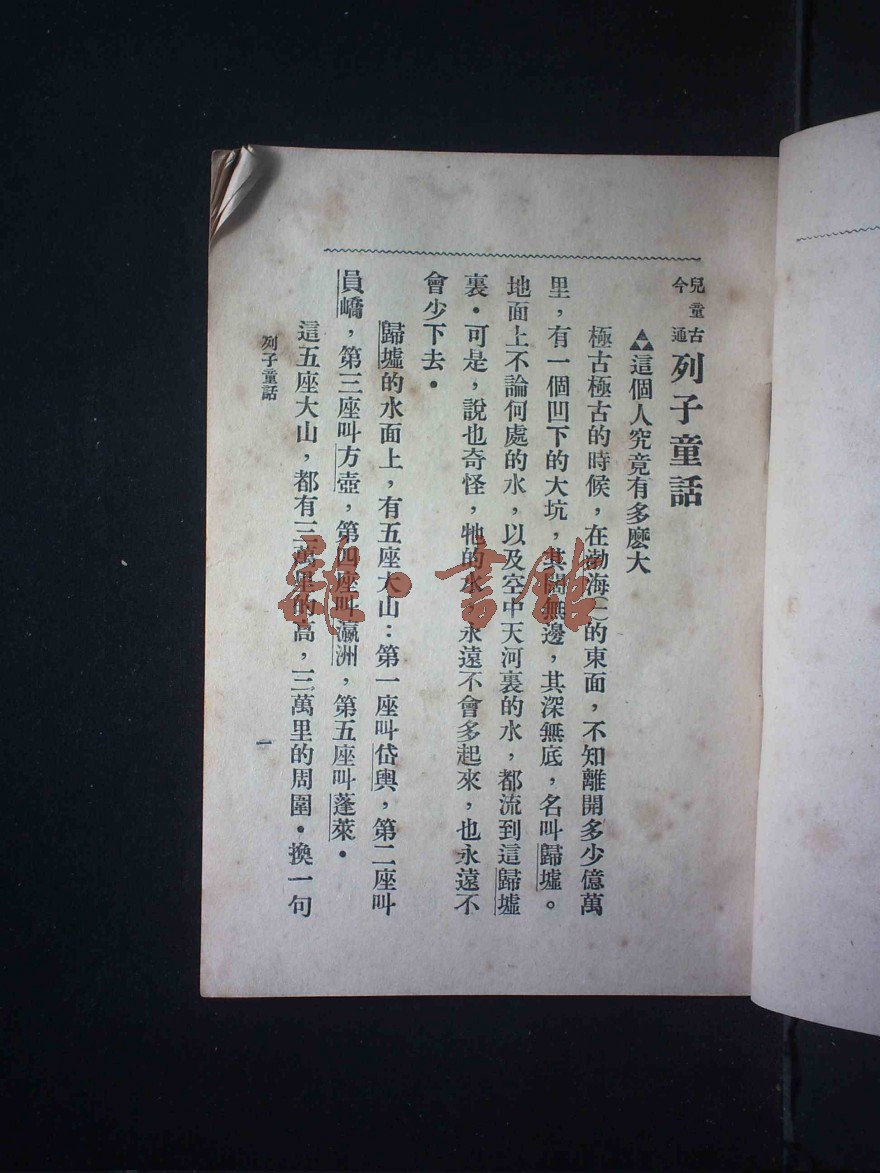 兒童古今通
列子童話
▲這個人究竟有多麽大
極古極古的時候，在渤海(一)的東面，不知離開多少億萬
里，有一個凹下的大坑，其闊無邊，其深無底，名叫歸墟。
地面上不論何處的水，以及空中天河裏的水，都流到這歸墟
裏．可是，說也奇怪，牠的水，永遠不會多起來，也永遠不
會少下去．
歸墟的水面上，有五座大山：第一座叫岱輿，第二座叫
員嶠，第三座叫方壺，第四座叫瀛洲，第五座叫蓬萊．
這五座大山，都有三萬里的高，三萬里的周圍．換一句
列子童話
一